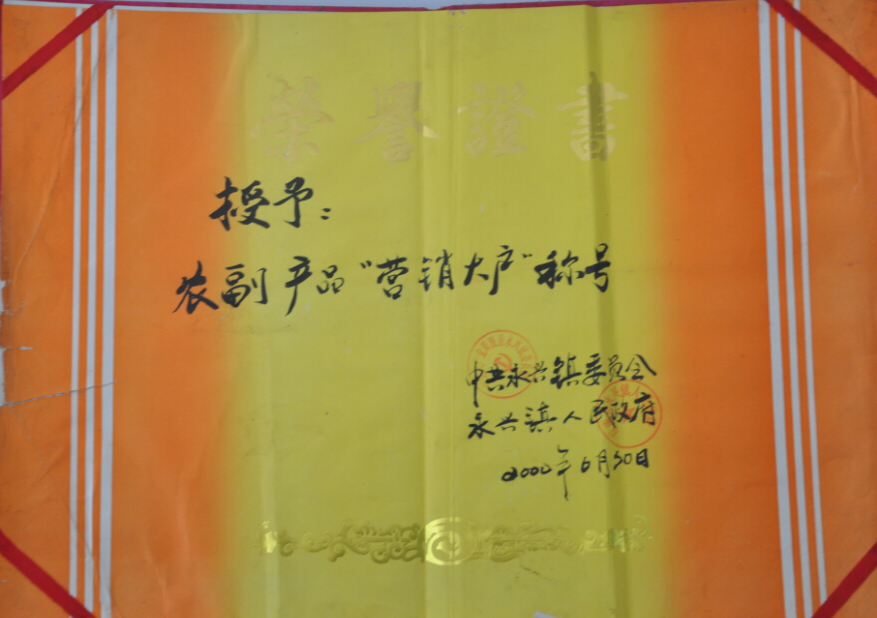 榮譽證書
授予：
农副产品“营销大户”称号
中共永兴镇委员会
永兴镇人民政府
2000年6月30日